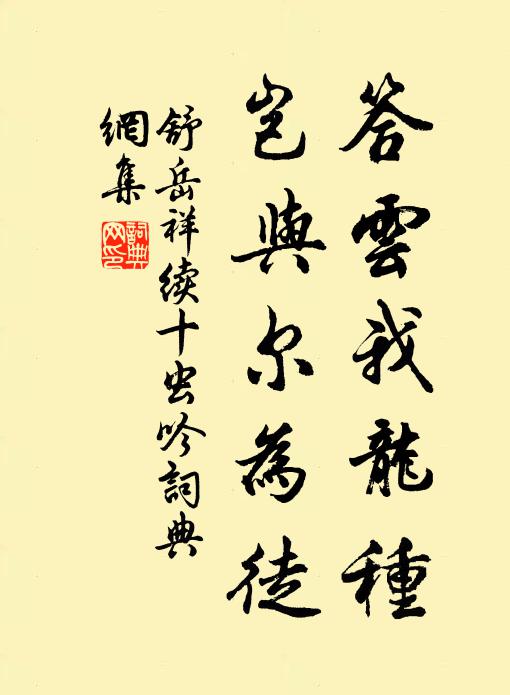 答雲我龍種
豈與尔為徒
舒岳祥续十虫吟詞典
網集
詞典
网印